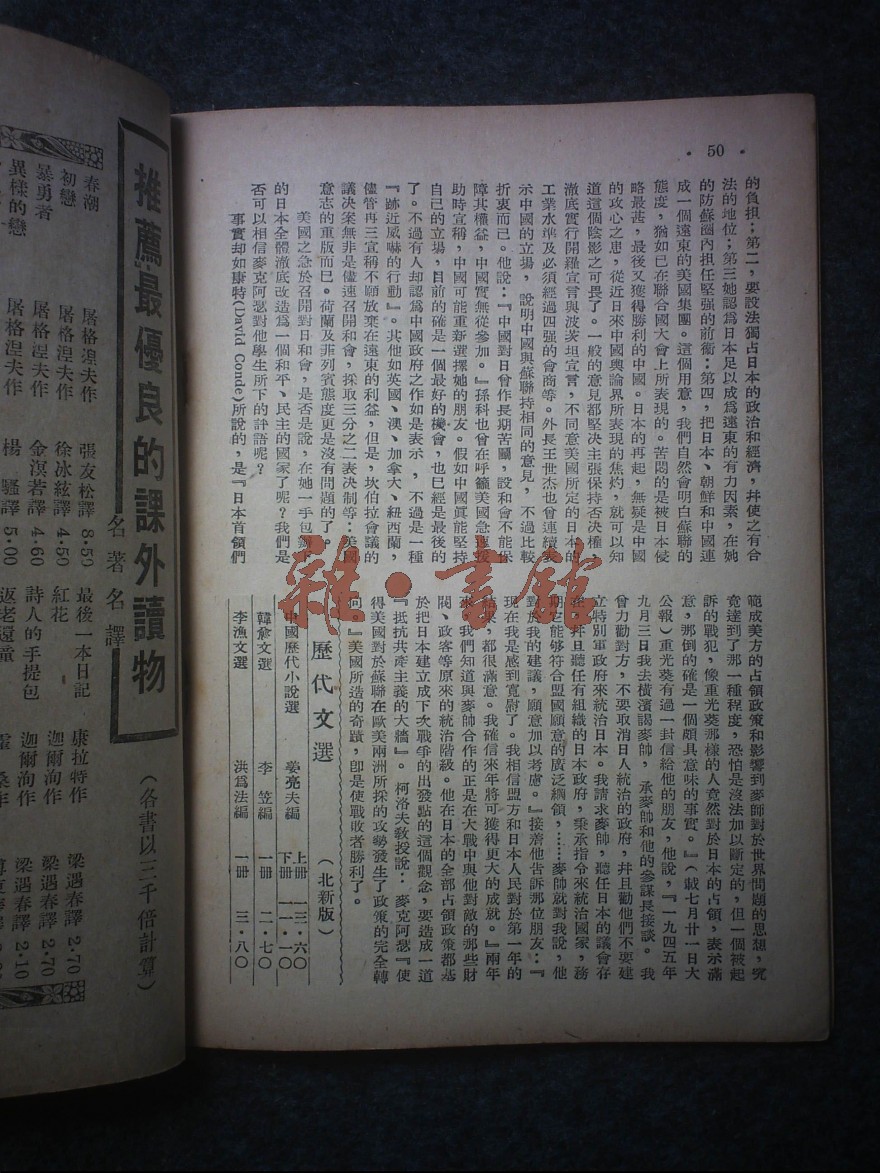 · 50 ·
的負担；第二，要設法獨占日本的政治和經濟，幷使之有合
法的地位；第三她認爲日本足以成爲遠東的有力因素，在她
的防蘇圈內担任堅强的前衞；第四，把日本、朝鮮和中國連
成一個遠東的美國集團。這個用意，我們自然會明白蘇聯的
態度，猶如已在聯合國大會上所表現的。苦悶的是被日本侵
略最甚，最後又獲得勝利的中國。日本的再起，無疑是中國
的攻心之患，從近日來中國輿論界所表現的焦灼，就可以知
道這個陰影之可畏了。一般的意見都堅决主張保持否决權，
澈底實行開羅宣言與波茨坦宣言，不同意美國所定的日本的
工業水準及必須經過四强的會商等。外長王世杰也曾連續表
示中國的立場，說明中國與蘇聯持相同的意見，不過比較
折衷而已。他說：『中國對日曾作長期苦鬭，設和會不能保
障其權益，中國實無從參加。』孫科也曾在呼籲美國急速援
助時宣稱，中國可能重新選擇她的朋友。假如中國眞能堅持
自己的立場，目前的確是一個最好的機會，也已經是最後的
了。不過有人却認爲中國政府之作如是表示，不過是一種
『跡近威嚇的行動』。其他如英國、澳、加拿大、紐西蘭，
儘管再三宣稱不願放棄在遠東的利益，但是，坎伯拉會議的
議决案無非是儘速召開和會，採取三分之二表决制等：美國
意志的重版而巳。荷蘭及菲列賓態度更是沒有問題的了。
美國之急於召開對日和會，是否是說，在她一手包
的日本全體澈底改造爲一個和平、民主的國家了呢？我們是
否可以相信麥克阿瑟對他學生所下的評語呢？
事實却如康特(David Conde)所說的，是『日本首領們
範成美方的占領政策和影響到麥師對於世界問題的思想，究
竟達到了那一種程度，恐怕是沒法加以斷定的，但一個被起
訴的戰犯，像重光葵那樣的人竟然對於日本的占領，表示滿
意，那倒的確是一個頗具意味的事實。』（載七月廿一日大
公報）重光葵有過一封信給他的朋友，他說，『一九四五年
九月三日我去橫濱謁麥帥，承麥帥和他的參謀長接談。我
曾力勸對方，不要取消日人統治的政府，幷且勸他們不要建
立特別軍政府來統治日本。我請求麥帥，聽任日本的議會存
在，幷且聽任有組織的日本政府，秉承指令來統治國家，務
期它能够符合盟國願意的廣泛綱領，……麥帥就對我說，他
對於我的建議，願意加以考慮。』接着他告訴那位朋友：『
現在我是感到寬慰了。我相信盟方和日本人民對於第一年的
結果，都很滿意。我確信來年將可獲得更大的成就。』兩年
來，我們知道與麥帥合作的正是在大戰中與他對敵的那些財
閥、政客等原來的統治階級。他在日本的全部占領政策都基
於把日本建立成下次戰爭的出發點的這個觀念，要造成一道
『抵抗共產主義的大牆』。柯洛夫敎授說：麥克阿瑟『使
得美國對於蘇聯在歐美兩洲所採的攻勢發生了政策的完全轉
向。』美國所造的奇蹟，卽是使戰敗者勝利了。
歷代文選（北新版）
中國歷代小說選 姜亮夫編 上册 一三·六〇 下册 一一·一〇
韓愈文選 李笠編 一册 二·七〇
李漁文選 洪爲法編 一册 三·八〇
推薦最優良的課外讀物
名著名譯
（各書以三千倍計算）
春潮 屠格涅夫作 張友松譯 8.50
初戀 屠格涅夫作 徐冰絃譯 4.50
暴勇者 屠格涅夫作 金溟若譯 4.60
異樣的戀 屠格涅夫作 楊騷譯 5.00
最後一本日記 康拉特作 梁遇春譯 2.70
紅花 迦爾洵作 梁遇春譯 2.70
詩人的手提包 迦爾洵作 梁遇春譯 2.10
返老還童
雜·書館